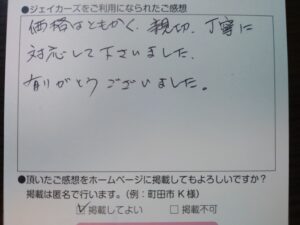 ●ジェイカーズをご利用になられたご感想
価格はともかく、親切、丁寧に
対応して下さいました。
有りがとうございました。
●頂いたご感想をホームページに掲載してもよろしいですか？
掲載は匿名で行います。（例：町田市 K 様）
☑掲載してよい　□掲載不可